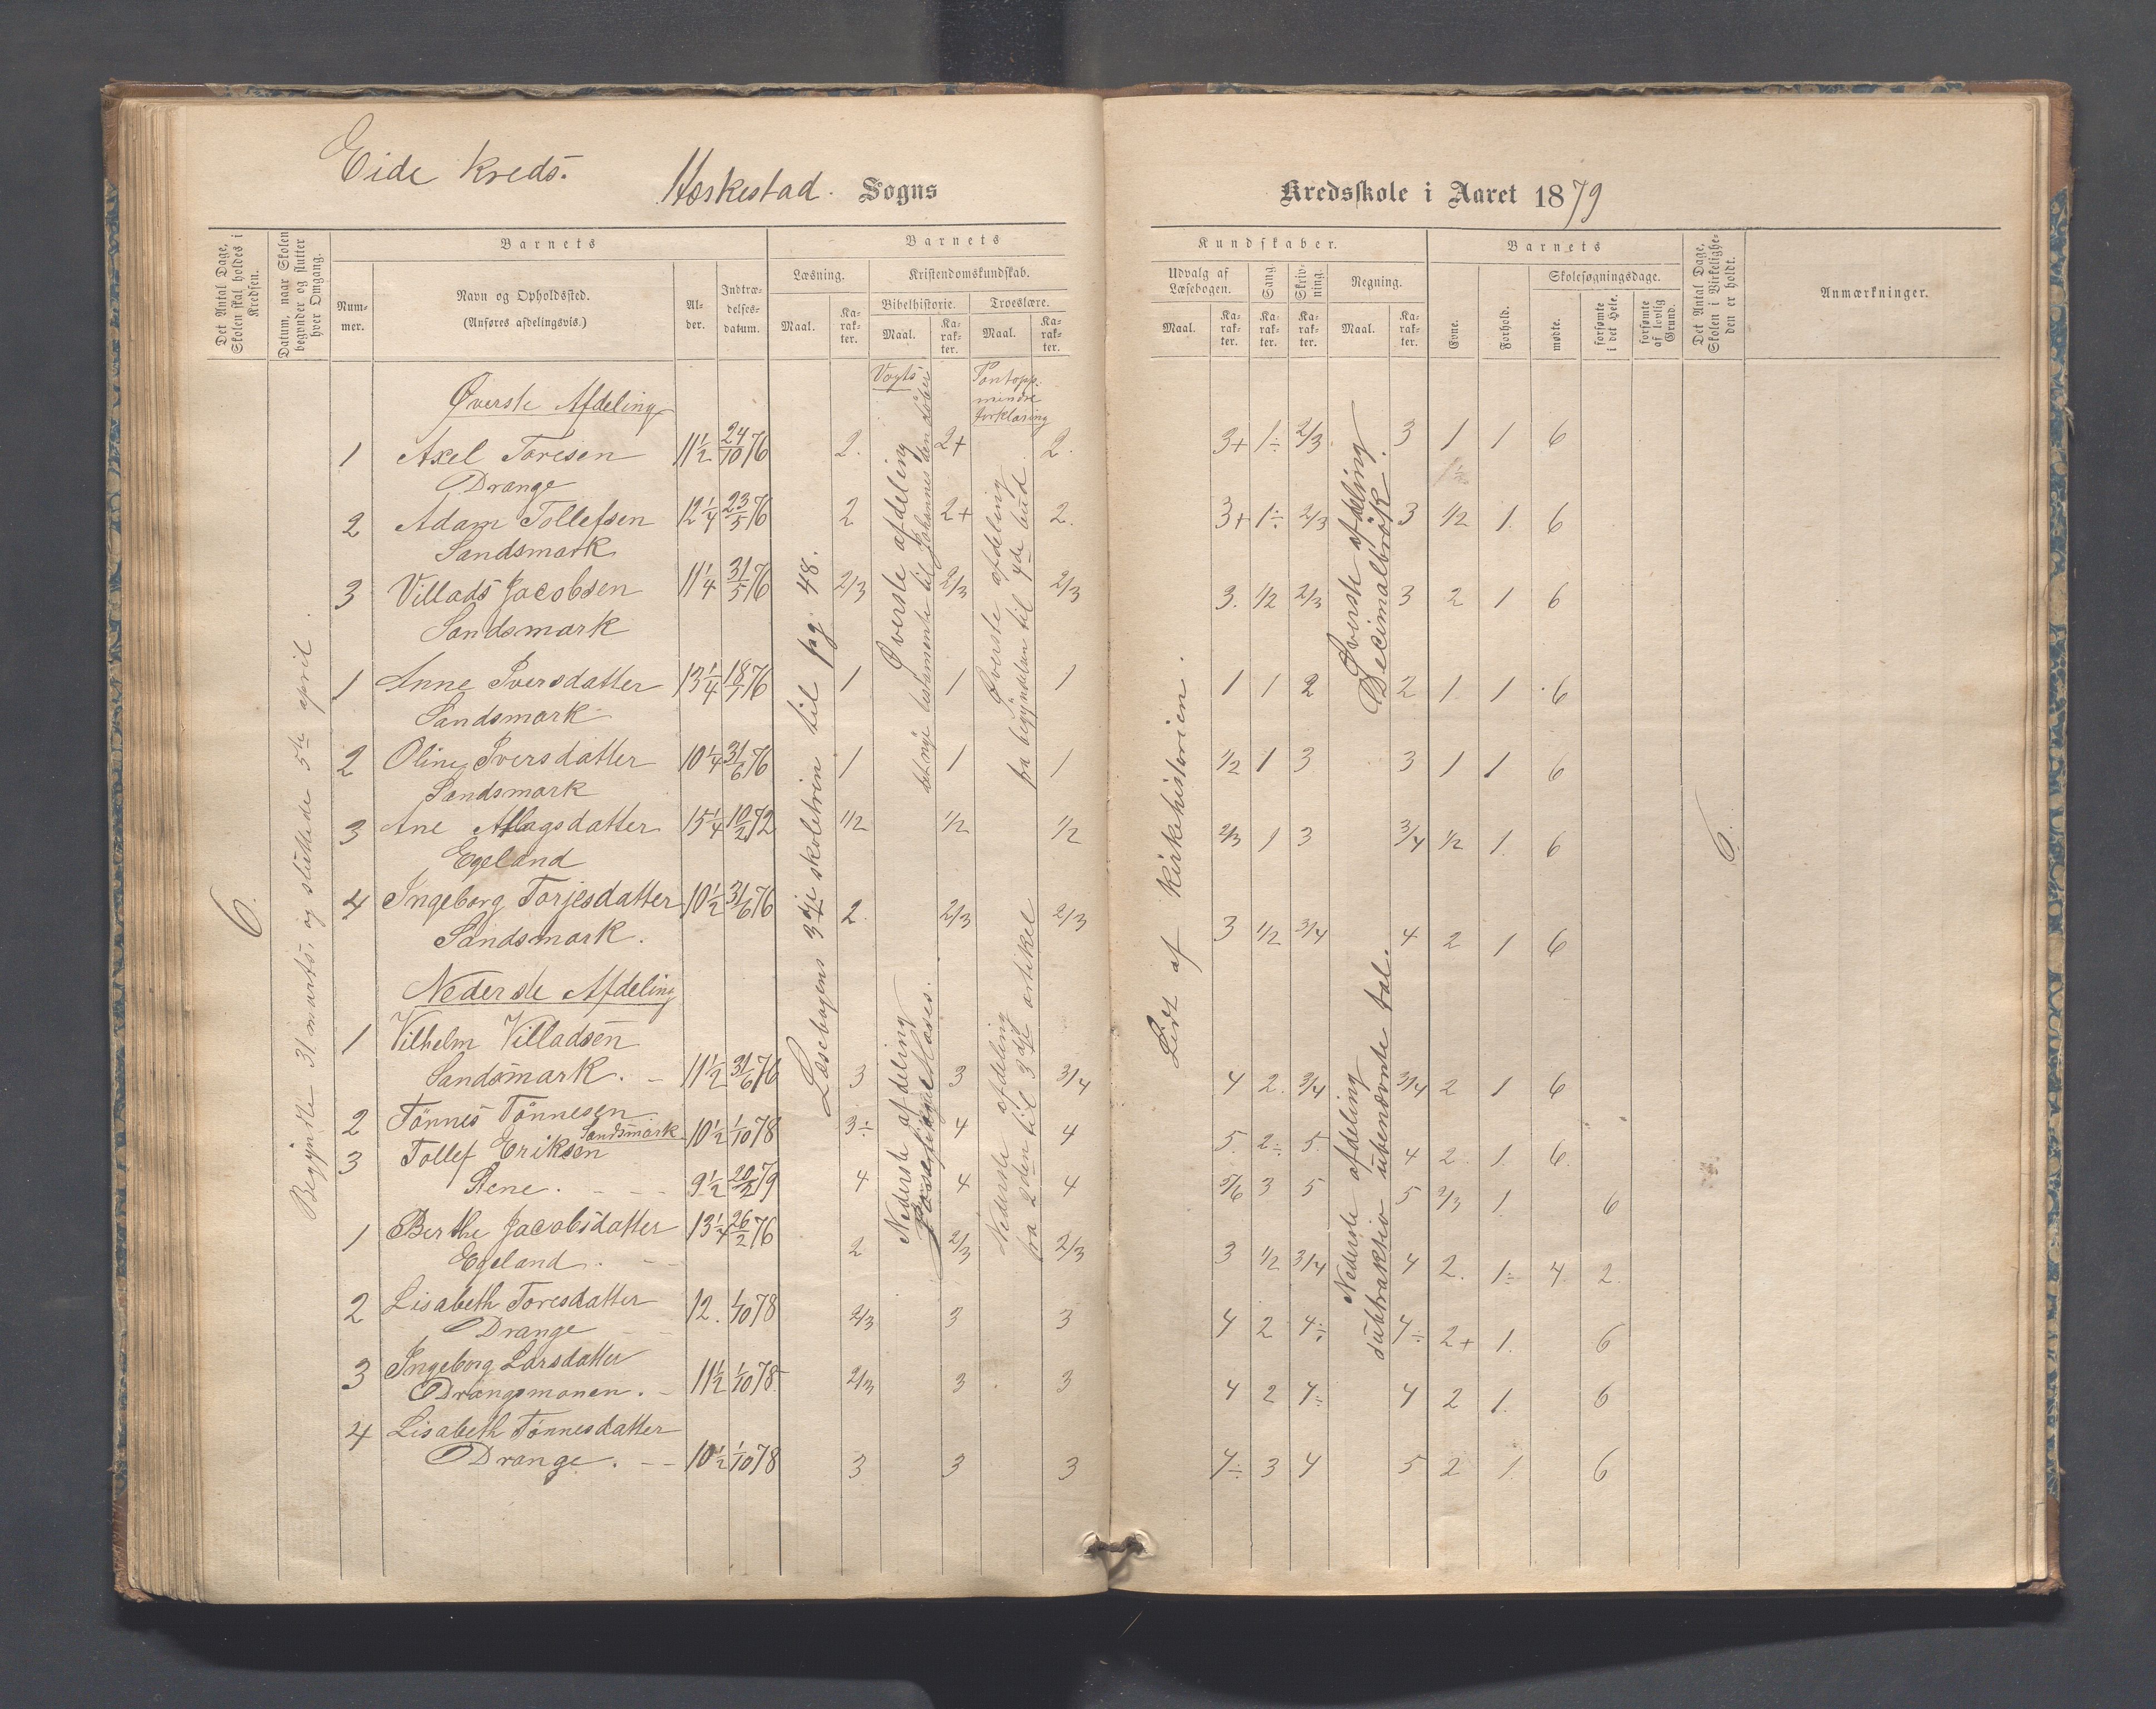 Eide kreds.
Heskestad. Sogns
Kredsskole i Aaret 1879
Det Antal Dage, Skolen skal holdes i Kredsen.
Datum, naar Skolen begynder og slutter hver Omgang.
Barnets
Nummer.
Navn og Opholdssted.
(Anføres afdelingsvis.)
Alder.
Indtrædelsesdatum.
Barnets
Læsning.
Maal.
Karakter.
Kristendomskundskab.
Bibelhistorie.
Maal.
Karakter.
Troeslære.
Maal.
Karakter.
Kundskaber.
Udvalg af Læsebogen.
Maal.
Karakter.
Sang
Karakter.
Skrivning.
Karakter.
Regning.
Maal.
Karakter.
Barnets
Evne.
Forhold.
Skolesøgningsdage.
mødte.
forsømte i det Hele.
forsømte af lovlig Grund.
Det Antal Dage, Skolen i Virkeligheden er holdt.
Anmærkninger.
6.
Begyndte 31 marts, og sluttede 5te april.
Læsebogens 3dje skoletrin til pag. 48.
Vogts
Øverste afdeling
det nye testamente til Johannes den døber
Nederste afdeling
Pontopp. mindre forklaring
Øverste afdeling
fra begyndelsen til 4de bud
Nederste afdeling
fra 2den til 3dje artikel
Lidt af kirkehistorien.
Øverste afdeling
Decimalbrök.
Nederste afdeling
subtraksio ubenævnte tal.
6.
Øverste Afdeling
1 Axel Toresen 11½ 24/10 76 2. 2+ 2. 3+ 1÷ 2/3. 3 1 1 6
Drange
2 Adam Tollefsen 12¼ 23/5 76 2 2+ 2. 3+ 1÷ 2/3 3 1/2 1. 6
Sandsmark
3 Villads Jacobsen 11¼ 31/5 76 2/3 2/3 2/3 3. 1/2 2/3 3 2 1 6
Sandsmark
1 Anne Iversdatter 13¼ 18/1 76 1 1 1 1 1 2 2 1. 1. 6
Sandsmark
2 Oline Iversdatter 10¼ 31/6 76 1 1 1 1/2 1 3 3 1 1 6
Sandsmark
3 Ane Aslagsdatter 15¼ 10/2 72 1/2 1/2 1/2 2/3 1 3 3/4 1/2 1. 6
Egeland
4 Ingeborg Torjesdatter 10½ 31/6 76 2. 2/3 2/3 3 1/2 3/4 4 2 1 6
Sandsmark.
Nederste Afdeling
1 Vilhelm Villadsen
Sandsmark. 11½ 31/6 76 3 3 3/4 4 2. 3/4 3/4 2 1 6
2 Tönnes Tönnesen Sandsmark 10½ 1/10 78 3÷ 4 4 5. 2÷ 5. 4 2. 1. 6.
3 Tollef Eriksen
Stene. 9½ 20/2 79 4 4 4 5/6 3 5 5 2/3 1. 6
1 Berthe Jacobsdatter 13¼ 26/2 76 2 2/3 2/3 3 1/2 3/4 4 2. 1÷ 4 2.
Egeland.
2 Lisabeth Toresdatter 12. 1/10 78 2/3 3 3 4 2 4÷ 4÷ 2+ 1. 6
Drange
3 Ingeborg Larsdatter
Drangsmonen. 11½ 1/10 78 2/3 3 3 4 2 4÷ 4 2 1. 6
4 Lisabeth Tönnesdatter
Drange. 10½ 1/10 78 3 3 3 4÷ 3 4 5 2 1. 6